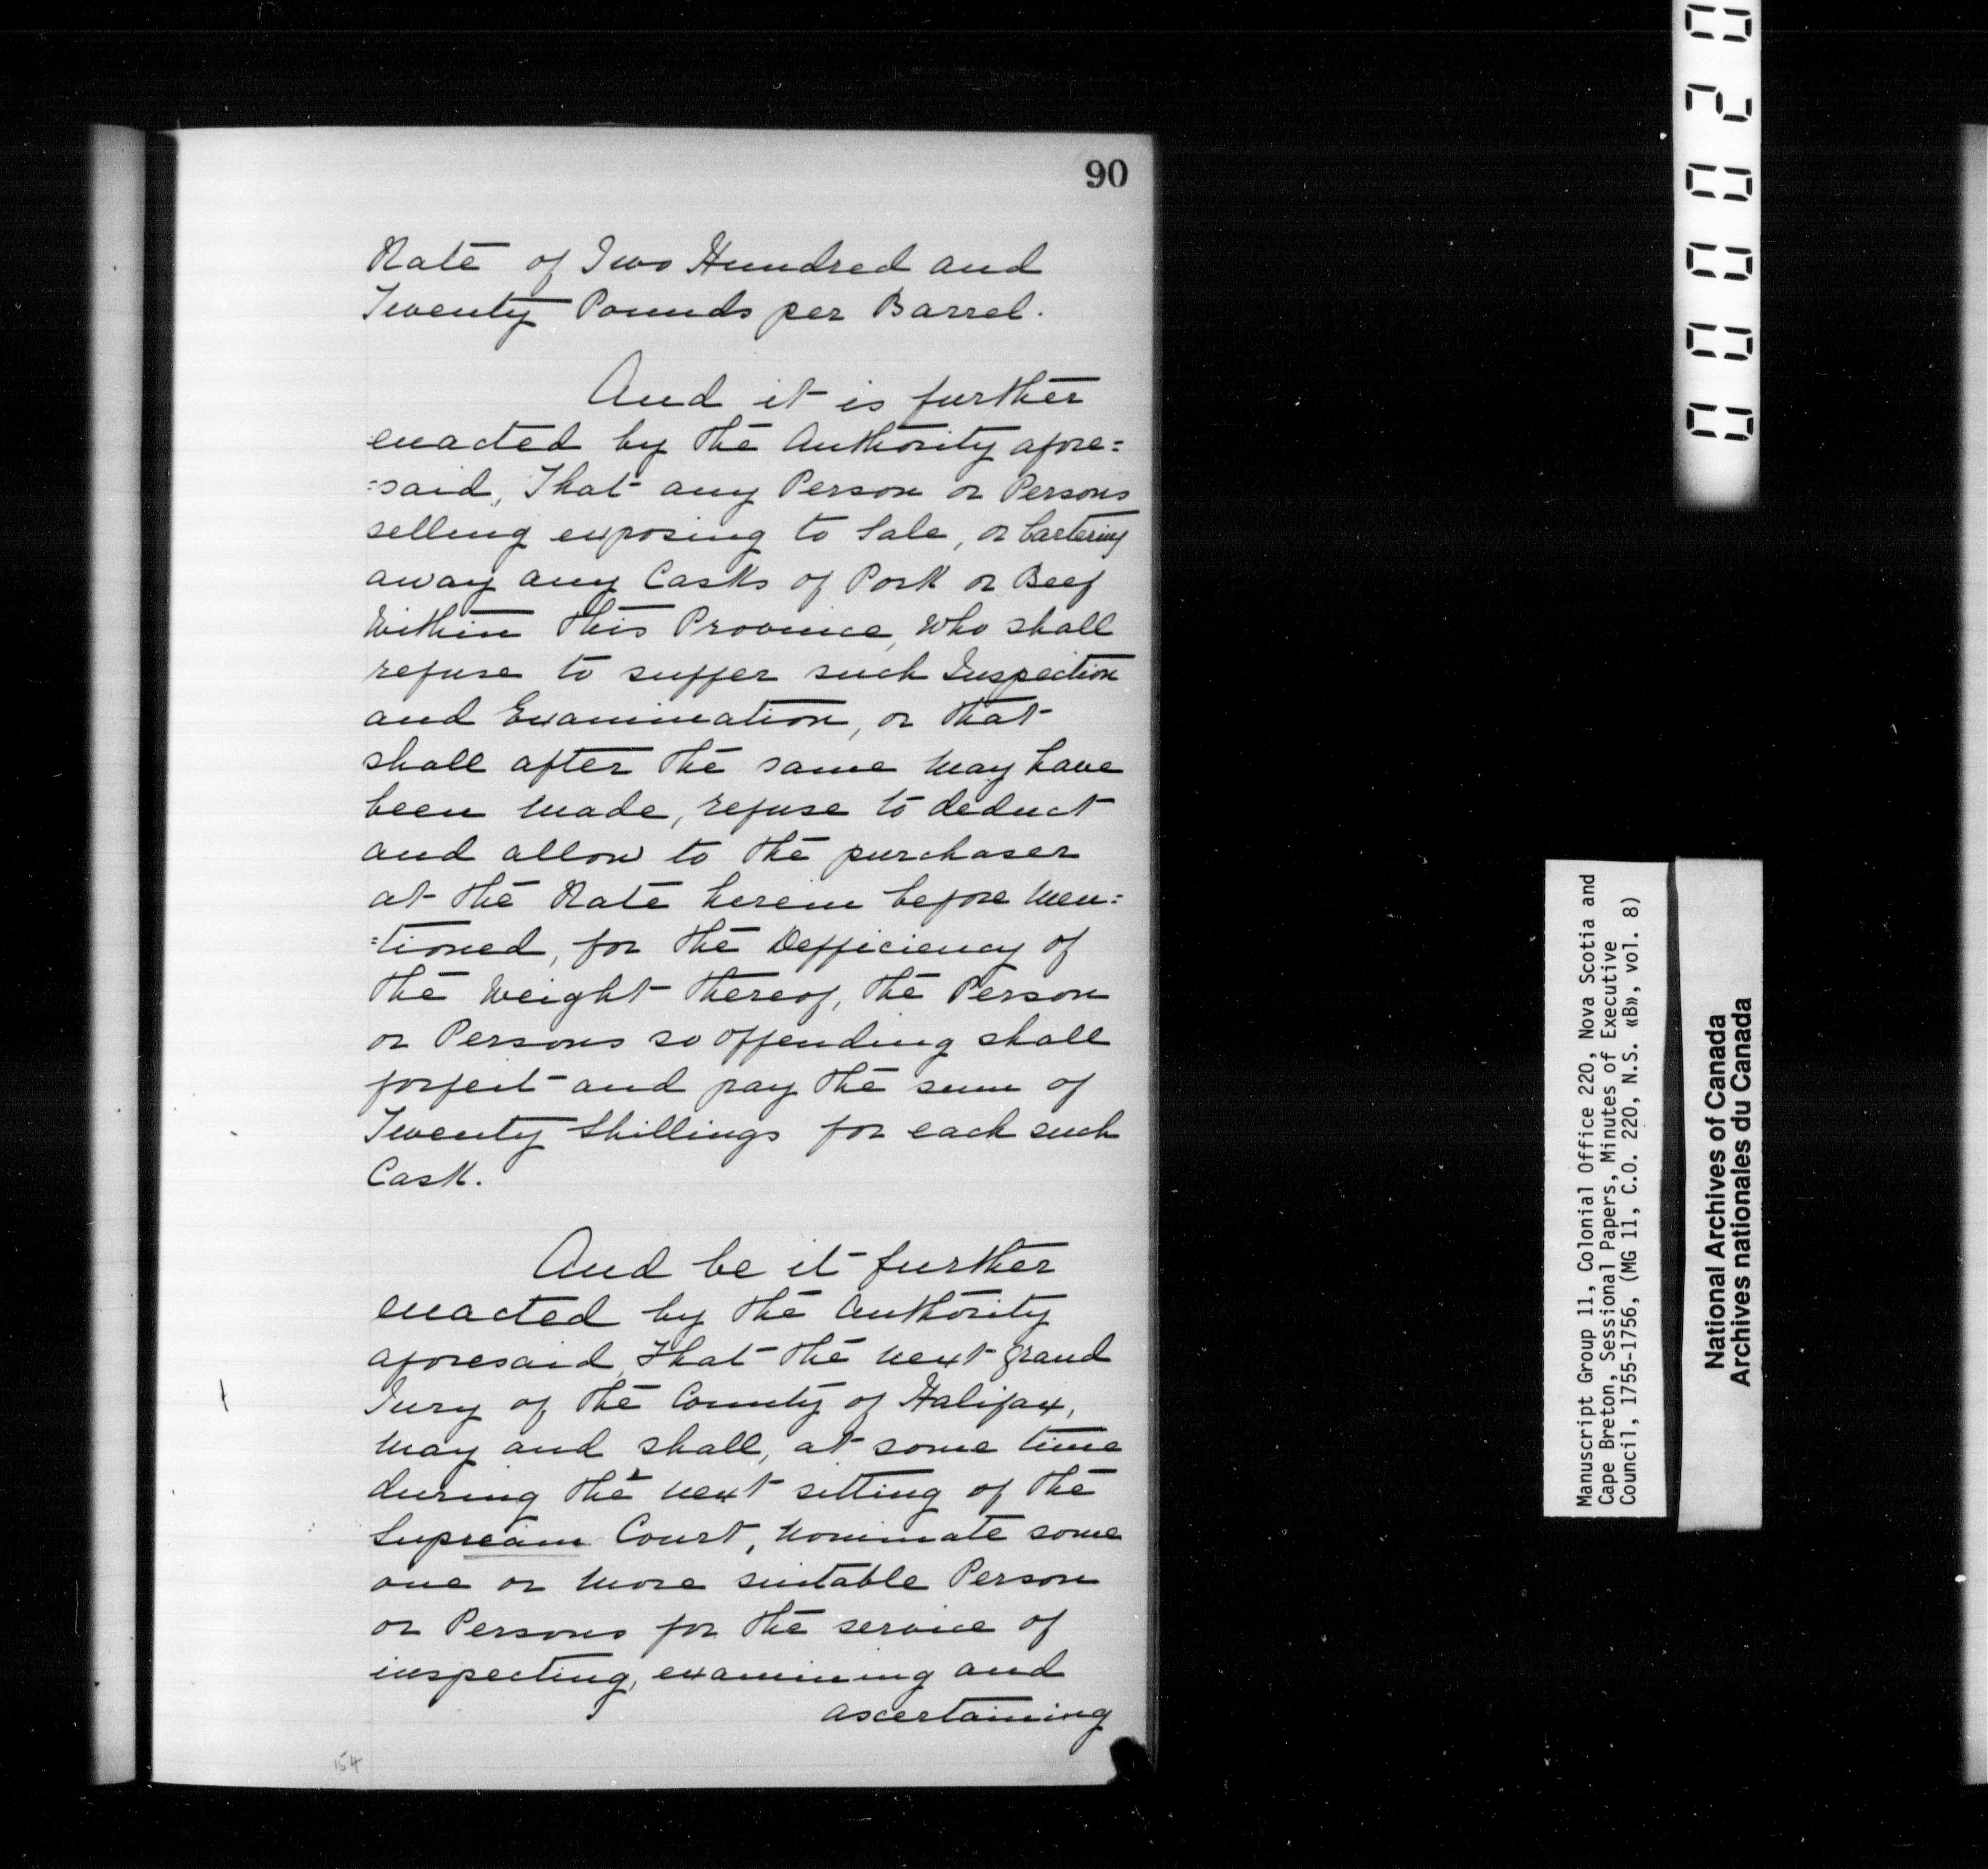 90
Rate of Two Hundred and
Twenty Pounds per Barrel.
And it is further
enacted by the Authority afore=
=said, That any Person or Persons
selling exposing to Sale, or bartering
away any Casks of Pork or Beef
Within this Province, Who shall
refuse to suffer such Inspection
and Examination, or that
shall after the same May have
been Made, refuse to deduct
and allow to the purchaser
at the Rate herein before Men=
=tioned, for the Defficiency of
the Weight thereof, the Person
or Persons so offending shall
forfeit and pay the sum of
Twenty Shillings for each such
Cask.
And be it further
enacted by the Authority
aforesaid, That the Next Grand
Jury of the County of Halifax,
May and shall, at some time
during the next sitting of the
Supream Court, Nominate some
one or More suitable Person
or Persons for the service of
inspecting, examining and
ascertaining
154
000020
Manuscript Group 11, Colonial Office 220, Nova Scotia and
Cape Breton, Sessional Papers, Minutes of Executive
Council, 1755-1756, (MG 11, C.O. 220, N.S. «B», vol. 8)
National Archives of Canada
Archives nationales du Canada